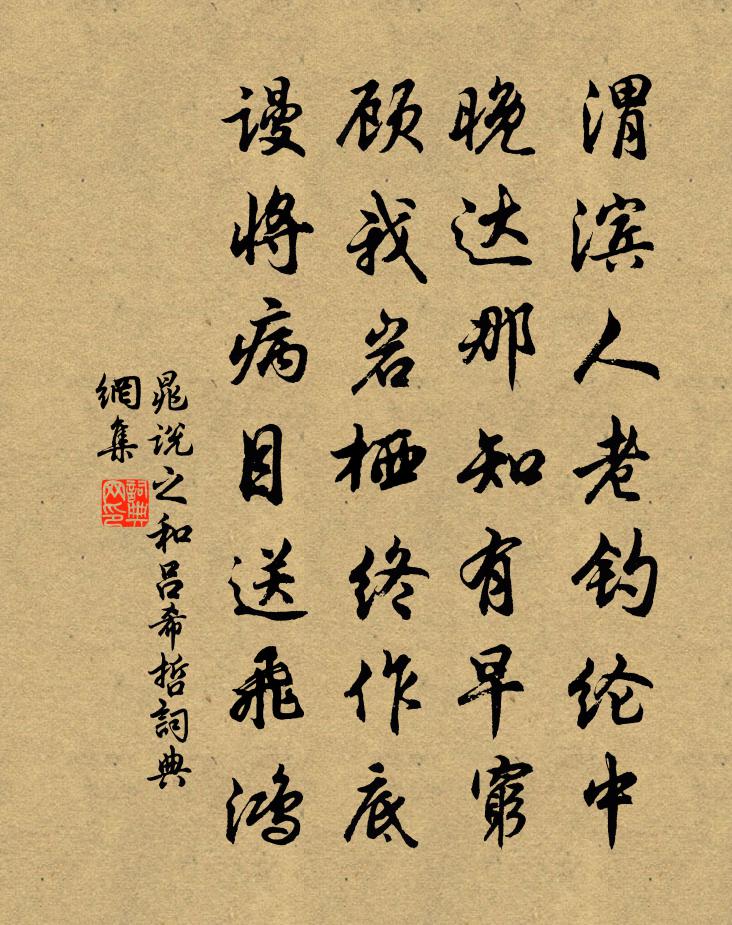 渭滨人老钓纶中
晚达那知有早穷
顾我岩栖终作底
谩将病目送飞鸿
晁说之和吕希哲詞典
網集
詞典
网印